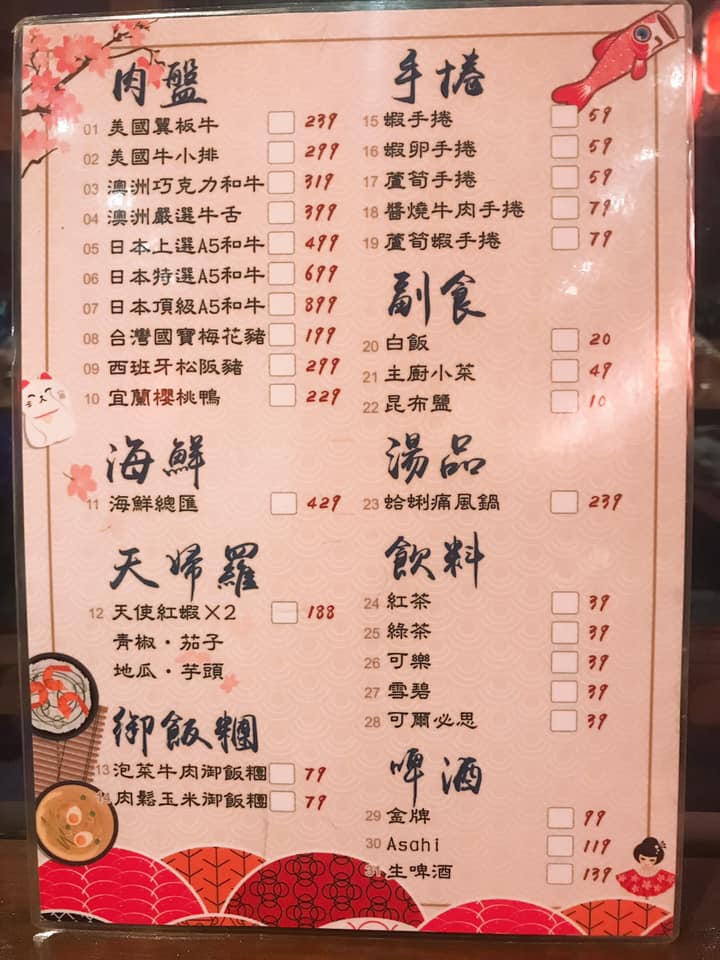 肉盤
01 美國翼板牛 239
02 美國牛小排 299
03 澳洲巧克力和牛 319
04 澳洲嚴選牛舌 399
05 日本上選A5和牛 499
06 日本特選A5和牛 699
07 日本頂級A5和牛 899
08 台灣國寶梅花豬 199
09 西班牙松阪豬 299
10 宜蘭櫻桃鴨 229
海鮮
11 海鮮總匯 429
天婦羅
12 天使紅蝦×2 188
青椒·茄子
地瓜·芋頭
御飯糰
13 泡菜牛肉御飯糰 79
14 肉鬆玉米御飯糰 79
手捲
15 蝦手捲 59
16 蝦卵手捲 59
17 蘆筍手捲 59
18 醬燒牛肉手捲 79
19 蘆筍蝦手捲 79
副食
20 白飯 20
21 主廚小菜 49
22 昆布鹽 10
湯品
23 蛤蜊痛風鍋 239
飲料
24 紅茶 39
25 綠茶 39
26 可樂 39
27 雪碧 39
28 可爾必思 39
啤酒
29 金牌 99
30 Asahi 119
31 生啤酒 139